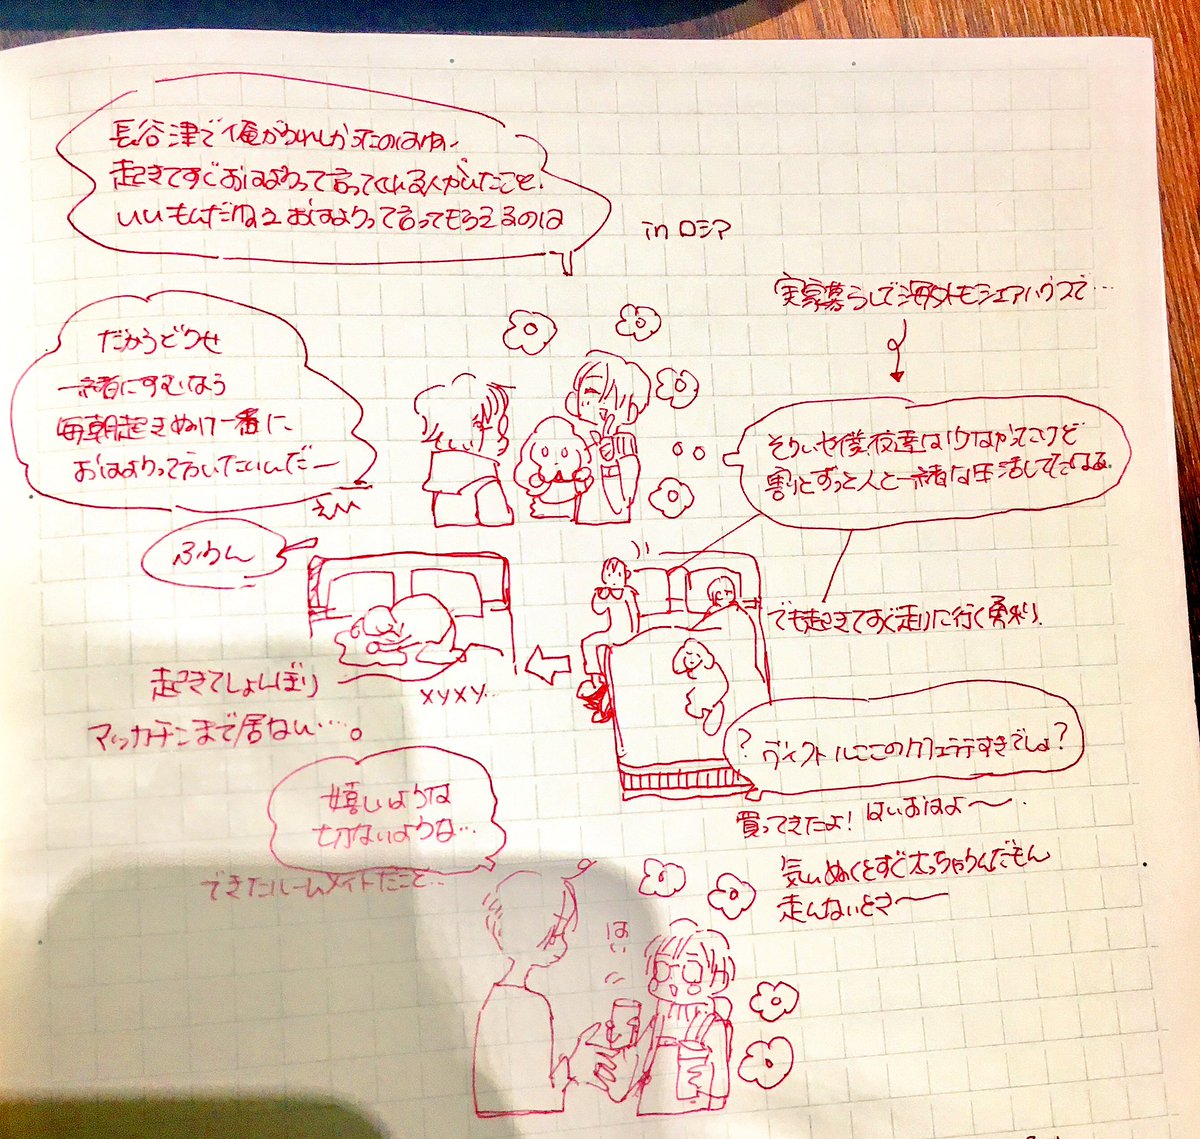 長谷津で俺がうれしかったのはね、
起きてすぐおはようって言ってくれる人がいたこと。
いいもんだねえおはようって言ってもらえるのは
in ロシア
だからどうせ
一緒にすむなら
毎朝起きぬけ一番に、
おはようって言いたいんだー
実家暮らしで海外もシェアハウスで…
そういや僕、夜達はいなかったけど
割とずっと人と一緒な生活してたなぁ
でも起きてすぐ走りに行く勇利
ふうん
起きてしょんぼり
マッカチンまで居ない…。
? ヴィクトルここのカフェラテすきでしょ?
買ってきたよ! はいおはよ〜
嬉しいような
切ないような…
できたルームメイトだこと…
気ぃぬくとすぐ太っちゃうんだもん
走んないとさ〜
はい